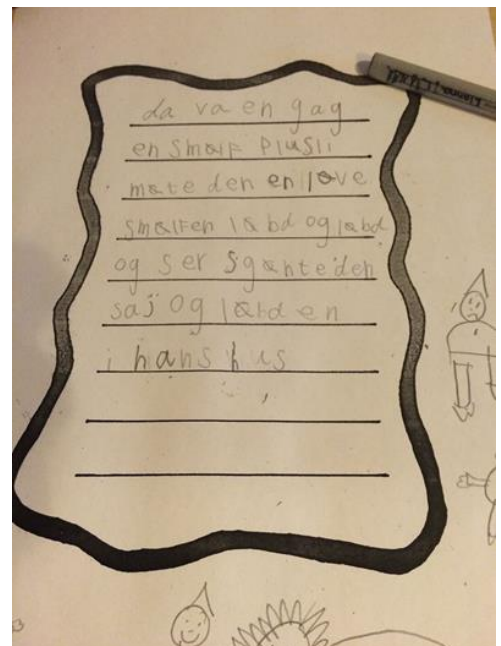 da va en gag
en smølf plusli
møte den en løve
smølfen løbd og løbd
og ser sgønte den
saj og løbd en
i hans hus